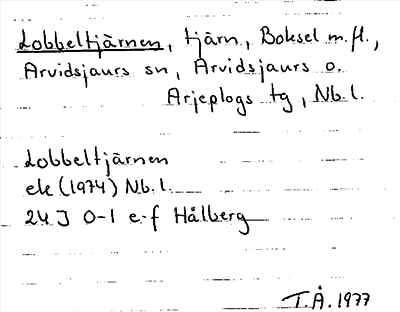 Lobbeltjärnen, tjärn, Boksel m.fl.,
Arvidsjaurs sn, Arvidsjaurs o.
Arjeplogs tg, Nb.l.
Lobbeltjärnen
ek (1974) Nb.l.
24J 0-1 e-f Hålberg
T.Å. 1977